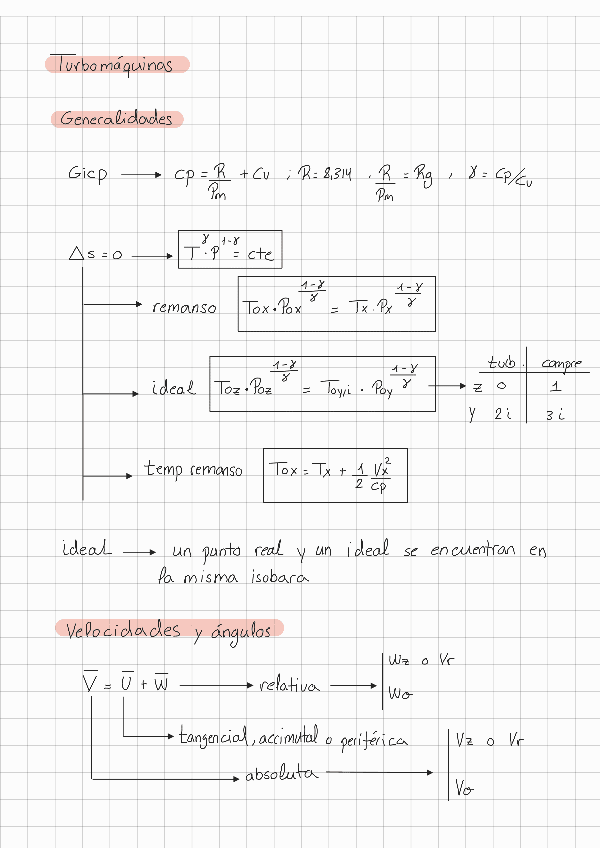 Turbomáquinas
Generalidades
Gicp → cp = R/Pm + Cv ; R = 8,314 , R/Pm = Rg , γ = Cp/Cv
Δs = 0 → T^γ · P^(1-γ) = cte
remanso Tox · Pox^((1-γ)/γ) = Tx · Px^((1-γ)/γ)
ideal Toz · Poz^((1-γ)/γ) = Toy,i · Poy^((1-γ)/γ) →
turb. compre
z 0 1
y 2i 3i
temp remanso Tox = Tx + 1/2 Vx²/cp
ideal → un punto real y un ideal se encuentran en
la misma isobara
Velocidades y ángulos
V̅ = U̅ + W̅ → relativa → Wz o Vr
Wσ
tangencial, accimutal o periférica
Vz o Vr
absoluta →
Vσ